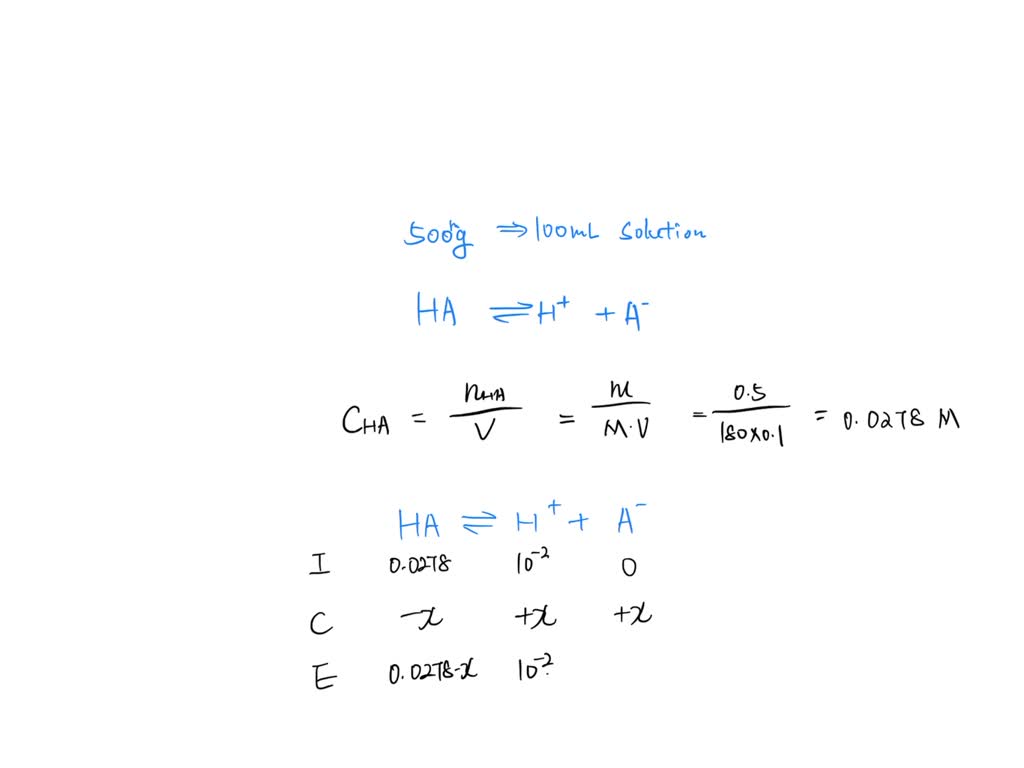 500mg ⇒ 100mL solution
HA ⇌ H⁺ + A⁻
C_HA = n_HA / V = m / M·V = 0.5 / 180×0.1 = 0.0278 M
HA ⇌ H⁺ + A⁻
I 0.0278 10⁻² 0
C -x +x +x
E 0.0278-x 10⁻²